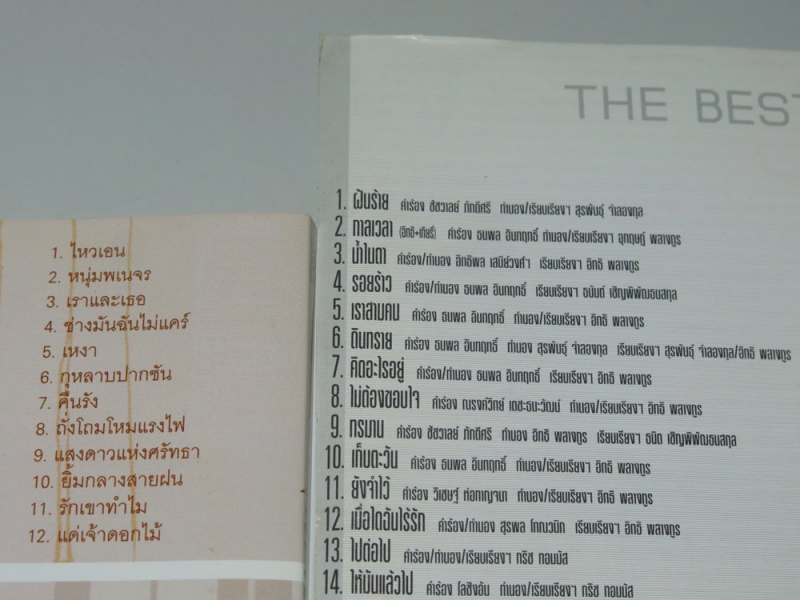 1. ไหวเอน
2. หนุ่มพเนจร
3. เราและเธอ
4. ช่างมันฉันไม่แคร์
5. เหงา
6. กุหลาบปากซัน
7. คืนรัง
8. ถั่งโถมโหมแรงไฟ
9. แสงดาวแห่งศรัทธา
10. ยิ้มกลางสายฝน
11. รักเขาทำไม
12. แด่เจ้าดอกไม้
THE BEST
1. ฝันร้าย คำร้อง ชัชวาลย์ ภักดีศรี ทำนอง/เรียบเรียงฯ สุรพันธุ์ จำลองกุล
2. กาลเวลา (อิทธิ+เกียรี่) คำร้อง ธนพล อินทฤทธิ์ ทำนอง/เรียบเรียงฯ อุกฤษฎ์ พลางกูร
3. น้ำในตา คำร้อง/ทำนอง อิทธิพล เสนีย์วงศ์ฯ เรียบเรียงฯ อิทธิ พลางกูร
4. รอยร้าว คำร้อง/ทำนอง ธนพล อินทฤทธิ์ เรียบเรียงฯ ธนันต์ เชิญพิพัฒธนสกุล
5. เราสามคน คำร้อง ธนพล อินทฤทธิ์ ทำนอง/เรียบเรียงฯ อิทธิ พลางกูร
6. ดินทราย คำร้อง ธนพล อินทฤทธิ์ ทำนอง สุรพันธุ์ จำลองกุล เรียบเรียงฯ สุรพันธุ์ จำลองกุล/อิทธิ พลางกูร
7. คิดอะไรอยู่ คำร้อง/ทำนอง ธนพล อินทฤทธิ์ เรียบเรียงฯ อิทธิ พลางกูร
8. ไม่ต้องขอบใจ คำร้อง ณรงค์วิทย์ เตชะธนะวัฒน์ ทำนอง/เรียบเรียงฯ อิทธิ พลางกูร
9. ทรมาน คำร้อง ชัชวาลย์ ภักดีศรี ทำนอง อิทธิ พลางกูร เรียบเรียงฯ ธนิต เชิญพิพัฒธนสกุล
10. เก็บตะวัน คำร้อง ธนพล อินทฤทธิ์ ทำนอง/เรียบเรียงฯ อิทธิ พลางกูร
11. ยังจำไว้ คำร้อง วิเชษฐ์ ห่อกาญจนา ทำนอง/เรียบเรียงฯ อิทธิ พลางกูร
12. เมื่อใดฉันไร้รัก คำร้อง/ทำนอง สุรพล โทณวนิก เรียบเรียงฯ อิทธิ พลางกูร
13. ไปต่อไป คำร้อง/ทำนอง/เรียบเรียงฯ กริช ทอมมัส
14. ให้มันแล้วไป คำร้อง โสฬส ทำนอง/เรียบเรียงฯ กริช ทอมมัส